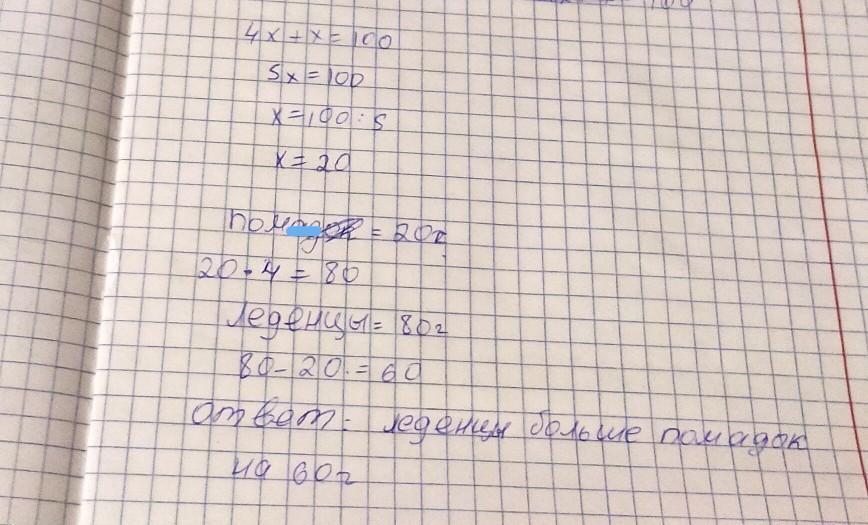 4x + x = 100
5x = 100
x = 100 : 5
x = 20
= 20г
20 · 4 = 80
леденцы = 80г
80 - 20 = 60
Ответ: леденцы больше помадок
на 60г